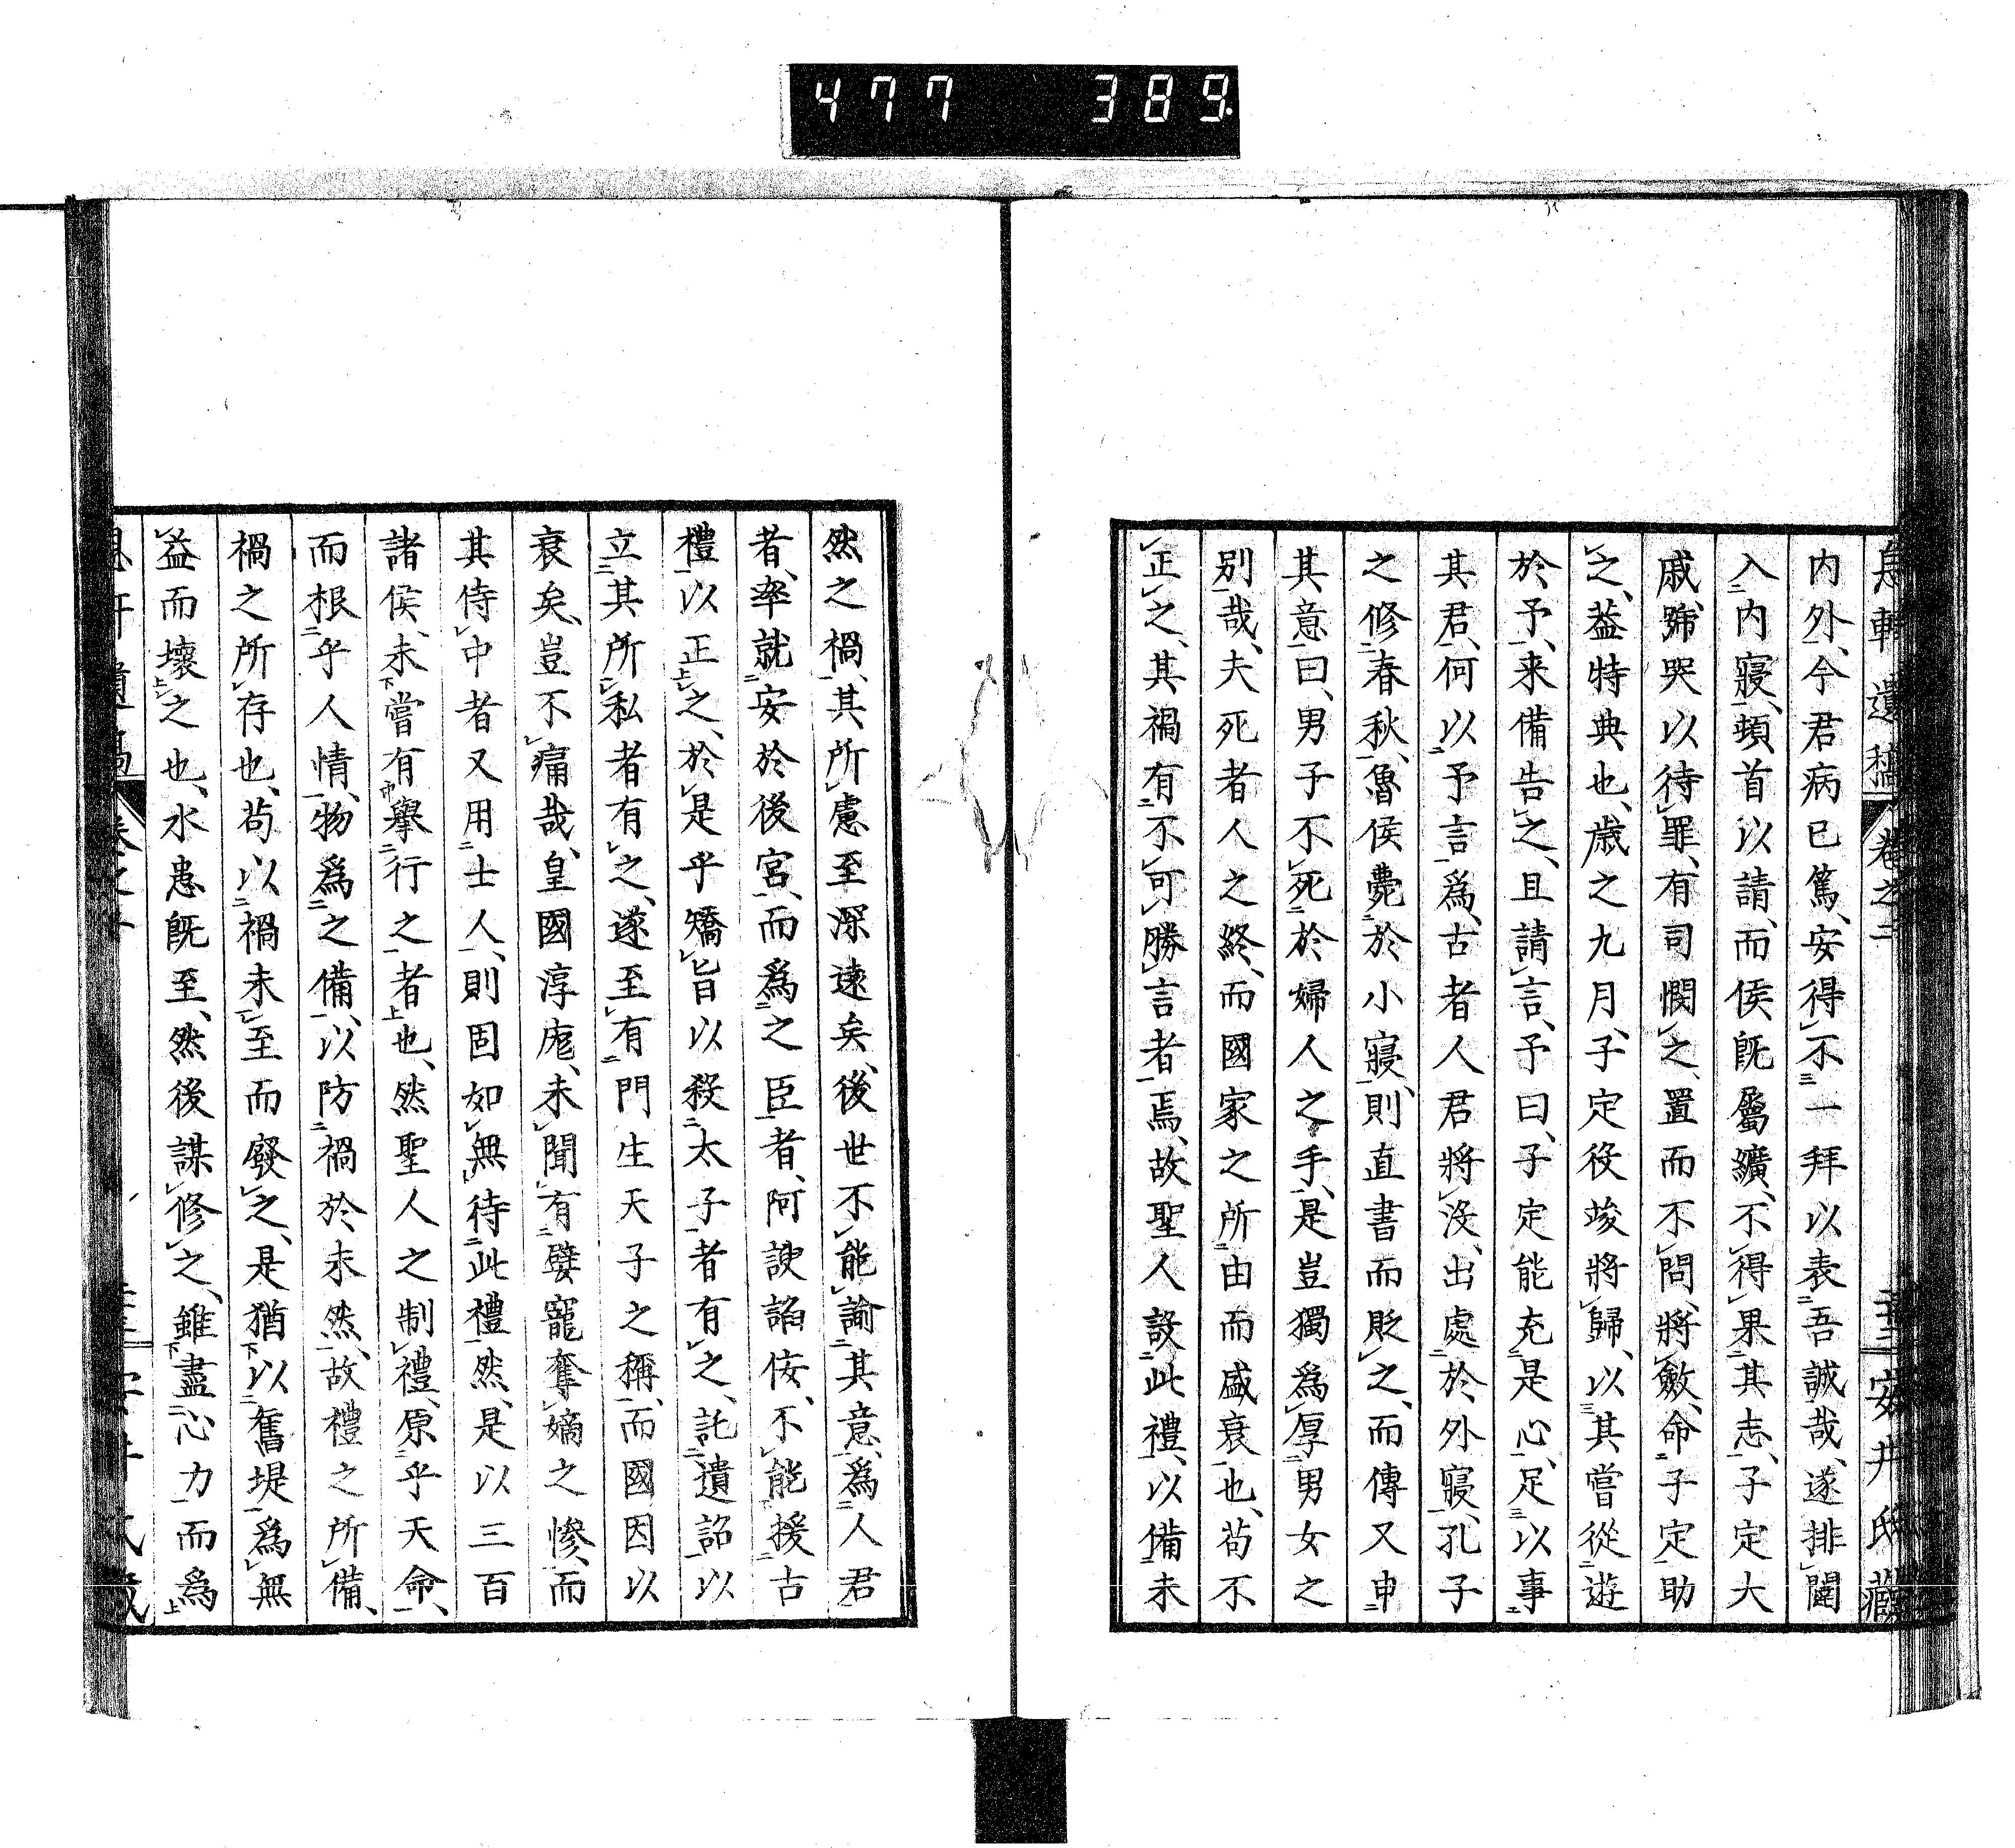 477 389
息軒遺稿 卷之二 安井氏藏
内外、今君病已篤、安得不一拜以表吾誠哉、遂排闥
入内寢、頓首以請、而侯既屬纊、不得果其志、子定大
戚、號哭以待罪、有司憫之、置而不問、將斂、命子定助
之、蓋特典也、歲之九月、子定役竣將歸、以其嘗從遊
於予、来備告之、且請言、予曰、子定能充是心、足以事
其君、何以予言爲、古者人君將沒、出處於外寢、孔子
之修春秋、魯侯薨於小寢、則直書而貶之、而傳又申
其意曰、男子不死於婦人之手、是豈獨爲厚男女之
別哉、夫死者人之終、而國家之所由而盛衰也、苟不
正之、其禍有不可勝言者焉、故聖人設此禮、以備未
然之禍、其所慮至深遠矣、後世不能諭其意、爲人君
者、率就安於後宮、而爲之臣者、阿諛諂佞、不能援古
禮以正之、於是乎矯旨以殺太子者有之、託遺詔以
立其所私者有之、遂至有門生天子之稱、而國因以
衰矣、豈不痛哉、皇國淳庬、未聞有嬖寵奪嫡之慘、而
其侍中者又用士人、則固如無待此禮然、是以三百
諸侯、未嘗有擧行之者也、然聖人之制禮、原乎天命、
而根乎人情、物爲之備、以防禍於未然、故禮之所備、
禍之所存也、苟以禍未至而廢之、是猶以舊堤爲無
益而壞之也、水患既至、然後謀修之、雖盡心力而爲